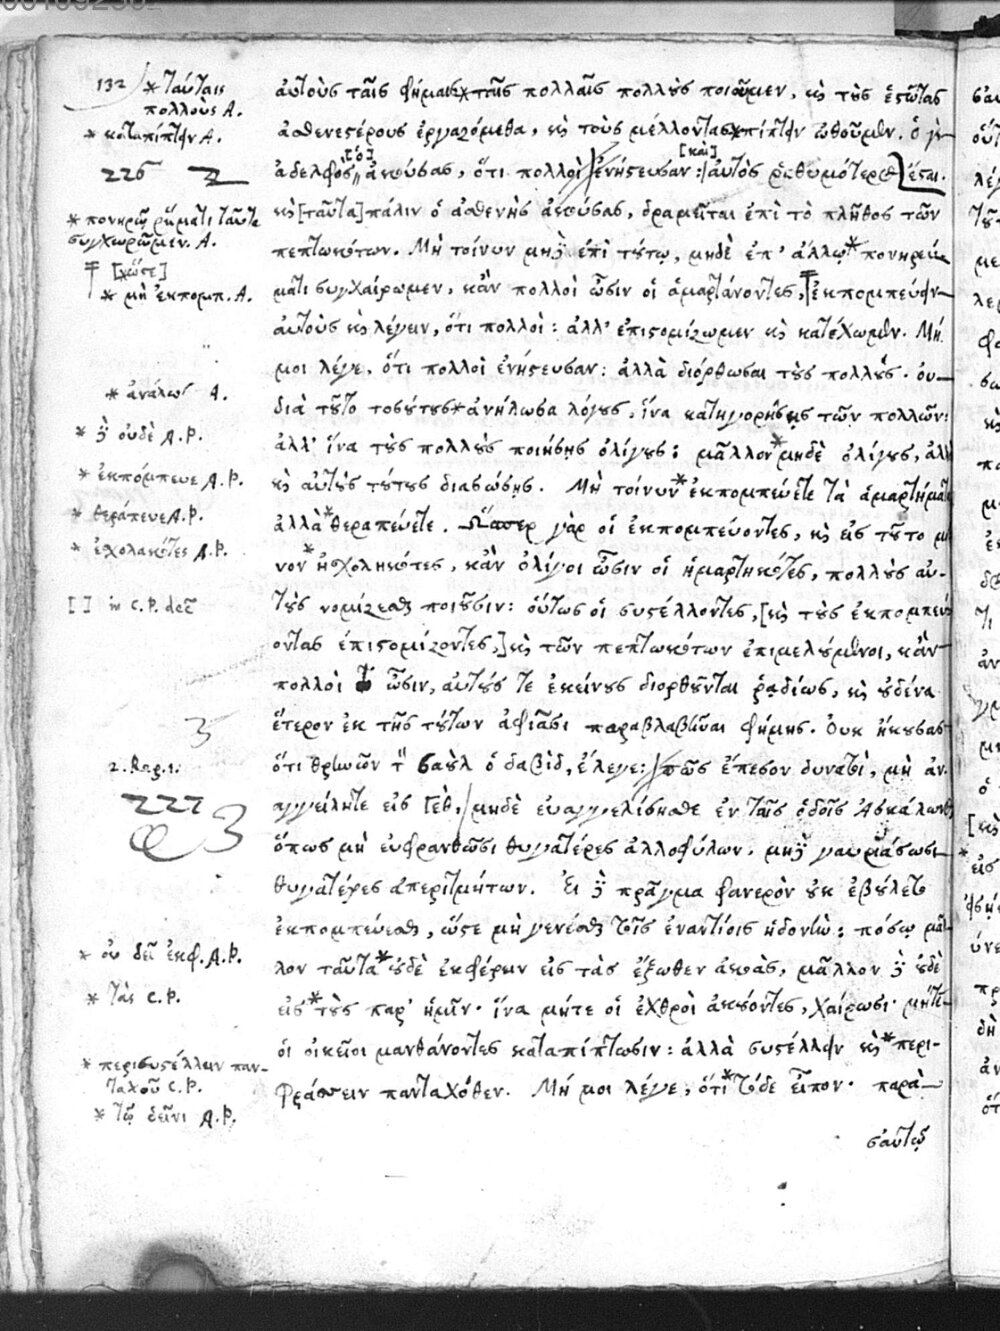 132
* ταύταις
πολλοὺς A.
* καταπίπτειν A.
226
* πονηρῷ ῥήματι ταῦτα
συγχωρῶμεν. A.
[ὥστε]
* μὴ ἐκπομπ. A.
* ἀνάλωσ A.
* δὲ οὐδὲ A.P.
* ἐκπόμπευε A.P.
* θεράπευε A.P.
* ἐσχολακότες A.P.
[ ] in C.P. deest
3
2. Reg. 1.
227
3
* οὐ δεῖ ἐκφ. A.P.
* τὰς C.P.
* περισυστέλλειν παν-
ταχοῦ C.P.
* τῷ δεῖνι A.P.
αὐτοὺς ταῖς φήμαις * ταῖς πολλαῖς πολλοὺς ποιοῦμεν, καὶ τοὺς ἑστῶτας
ἀσθενεστέρους ἐργαζόμεθα, καὶ τοὺς μέλλοντας * πίπτειν ὠθοῦμεν. ὁ γὰρ
ἀδελφὸς [ὁ] ἀκούσας, ὅτι πολλοὶ ἐνήστευσαν: [καὶ] αὐτὸς ῥαθυμότερος ἔσται.
καὶ [ταῦτα] πάλιν ὁ ἀσθενὴς ἀκούσας, δραμεῖται ἐπὶ τὸ πλῆθος τῶν
πεπτωκότων. Μὴ τοίνυν μηδὲ ἐπὶ τούτῳ, μηδὲ ἐπ' ἄλλῳ * πονηρεύ-
ματι συγχαίρωμεν, κἂν πολλοὶ ὦσιν οἱ ἁμαρτάνοντες, ἐκπομπεύειν
αὐτοὺς καὶ λέγειν, ὅτι πολλοί: ἀλλ' ἐπιστομίζωμεν καὶ κατέχωμεν. Μή
μοι λέγε, ὅτι πολλοὶ ἐνήστευσαν: ἀλλὰ διόρθωσαι τοὺς πολλούς. οὐ
διὰ τοῦτο τοσούτους * ἀνήλωσα λόγους, ἵνα κατηγορήσῃς τῶν πολλῶν:
ἀλλ' ἵνα τοὺς πολλοὺς ποιήσῃς ὀλίγους: μᾶλλον * μηδὲ ὀλίγους, ἀλλὰ
καὶ αὐτοὺς τούτους διασώσῃς. Μὴ τοίνυν * ἐκπομπεύετε τὰ ἁμαρτήματα
ἀλλὰ * θεραπεύετε. Ὥσπερ γὰρ οἱ ἐκπομπεύοντες, καὶ εἰς τοῦτο μό
νον * ἠσχοληκότες, κἂν ὀλίγοι ὦσιν οἱ ἡμαρτηκότες, πολλοὺς αὐ-
τοὺς νομίζεσθαι ποιοῦσιν: οὕτως οἱ συστέλλοντες, [καὶ τοὺς ἐκπομπεύ
οντας ἐπιστομίζοντες,] καὶ τῶν πεπτωκότων ἐπιμελούμενοι, κἂν
πολλοὶ ὦσιν, αὐτούς τε ἐκείνους διορθοῦνται ῥᾳδίως, καὶ οὐδένα
ἕτερον ἐκ τῆς τούτων ἀφιᾶσι παραβλαβῆναι φήμης. Οὐκ ἤκουσας
ὅτι θρηνῶν τὸν Σαοὺλ ὁ Δαβίδ, ἔλεγε: πῶς ἔπεσον δυνατοί, μὴ ἀν-
αγγείλητε εἰς Γέθ, μηδὲ εὐαγγελίσησθε ἐν ταῖς ὁδοῖς Ἀσκάλωνος
ὅπως μὴ εὐφρανθῶσι θυγατέρες ἀλλοφύλων. μηδὲ γαυριάσωσι
θυγατέρες ἀπεριτμήτων. Εἰ δὲ πρᾶγμα φανερὸν οὐκ ἐβούλετο
ἐκπομπεύεσθαι, ὥστε μὴ γενέσθαι τοῖς ἐναντίοις ἡδονήν: πόσῳ μᾶλ
λον ταῦτα * οὐδὲ ἐκφέρειν εἰς τὰς ἔξωθεν ἀκοάς, μᾶλλον δὲ οὐδὲ
εἰς * τοὺς παρ' ἡμῖν. ἵνα μήτε οἱ ἐχθροὶ ἀκούοντες, χαίρωσι. μήτε
οἱ οἰκεῖοι μανθάνοντες καταπίπτωσιν: ἀλλὰ συστέλλειν καὶ * περι-
φράττειν πανταχόθεν. Μή μοι λέγε, ὅτι * τόδε εἶπον. παρὰ
σαυτῷ